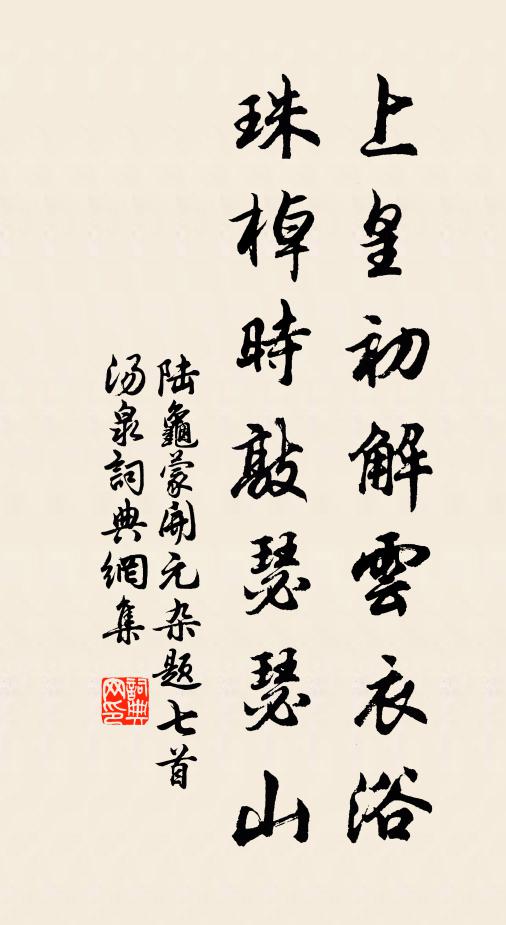 上皇初解雲衣浴
珠棹時敲瑟瑟山
陆龜蒙開元杂题七首
湯泉詞典網集
詞典
网印